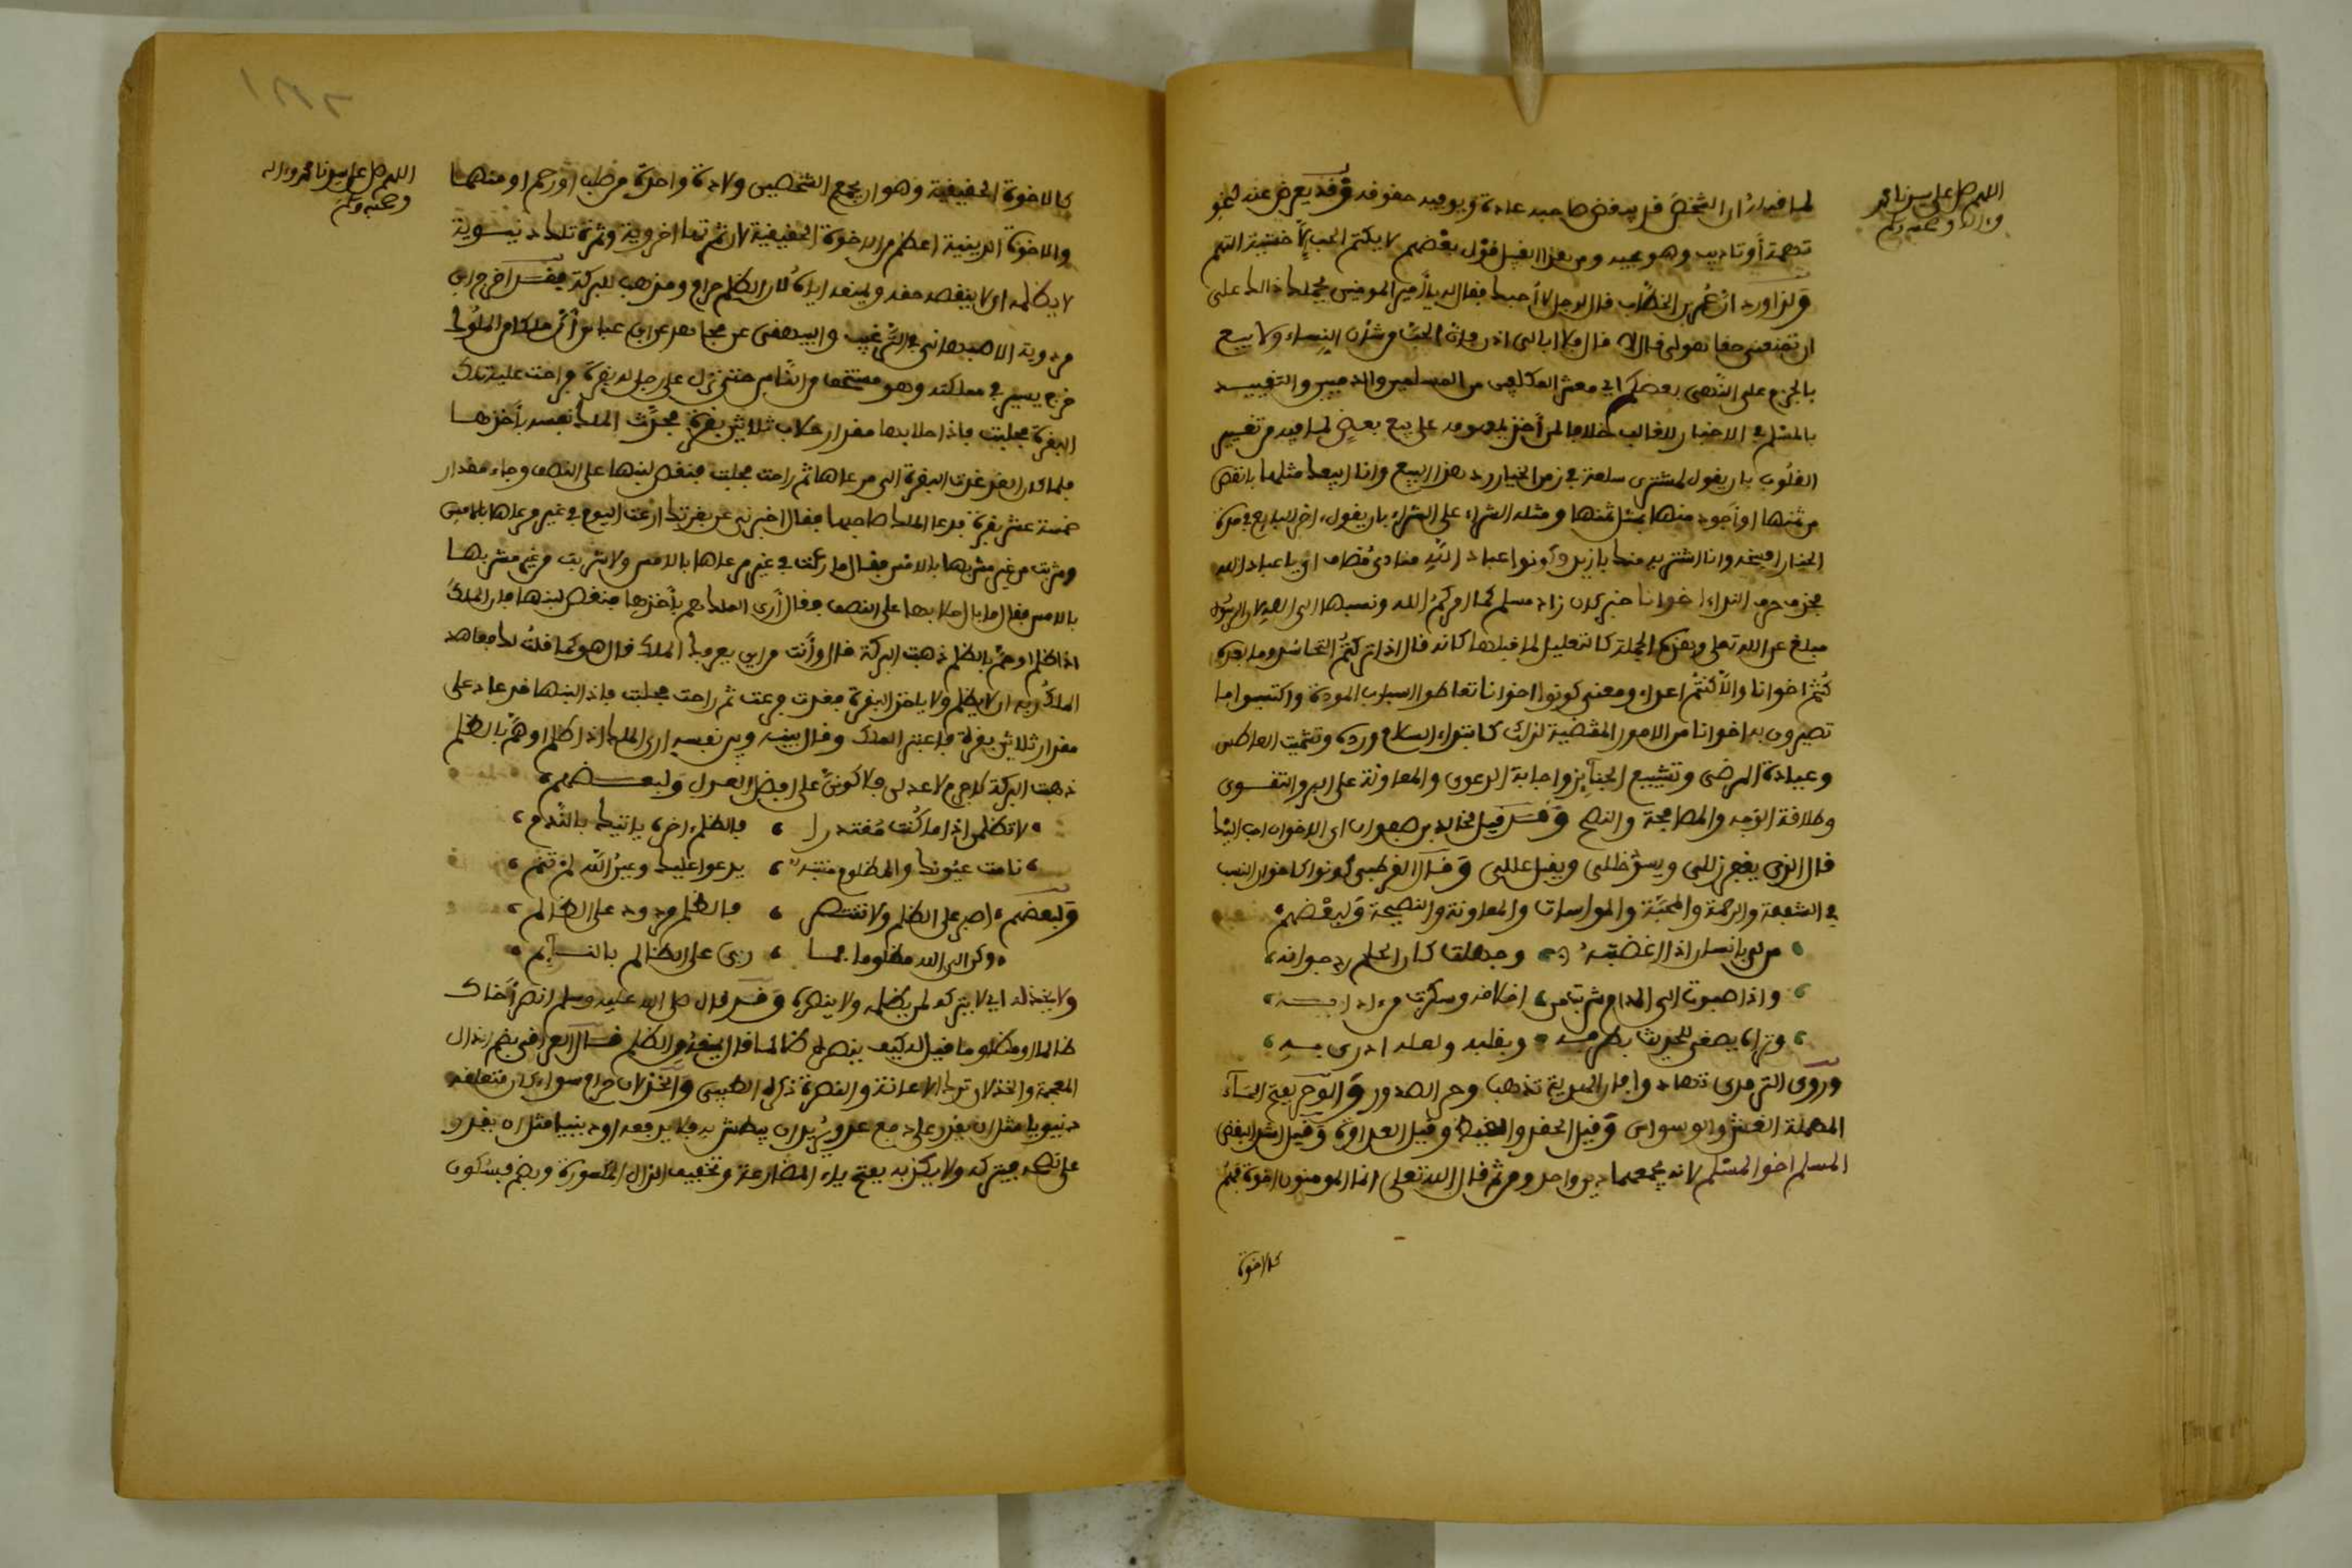 اللهم صل على سيدنا محمد
وءاله وصحبه وسلم
لما فيه اذ ان الشخص قل يبغض صاحبه عادة ويوفيه حقوقه وقد يعرض عنه لنحو
تهمة أو تاديب وهو يحبه ومن هذا القبيل قول بعضهم لا يكتم الحب إلا خشية التهم
ولذا ورد ان عمر بن الخطاب قال لرجل لا أحبك فقال له يا أمير المومنين يحملك ذالك على
ان تمنعني حقا هو لي قال لا قال فلا ابالي اذن فان الحب من شأن النساء ولا يبع
بالجزم على النهي بعضكم اي معشر المكلفين من المسلمين والذميين والتقييد
بالمسلم في الاخبار للغالب خلافا لمن أخذ بمفهومه على بيع بعض لما فيه من تغيير
القلوب بان يقول لمشتري سلعة في زمن الخيار رد هذا البيع وانا ابيعك مثلها بانقص
من ثمنها او أجود منها بمثل ثمنها ومثله الشراء على الشراء بان يقول ءاخر للبايع في مدة
الخيار افسخه وانا اشتريه منك بازيد وكونوا عباد الله منادى مضاف اي يا عباد الله
بحذف حرف النداء اخوانا خبر كان زاد مسلم كما امركم الله ونسبها الى الله لان الرسول
مبلغ عن الله تعلى وهذه الجملة كالتعليل لما قبلها كانه قال اذا تركتم التحاسد وما بعده
كنتم اخوانا والا كنتم اعداء ومعنى كونوا اخوانا تعاطوا اسباب المودة واكتسبوا ما
تصيرون به اخوانا من الامور المقتضية لذلك كابتداء السلام ورده وتشميت العاطس
وعيادة المرضى وتشييع الجنآيز واجابة الدعوى والمعاونة على البر والتقوى
وطلاقة الوجه والمصافحة والنصح وقد قيل لخالد بن صفوان اي الاخوان احب اليك
قال الذي يغفر زللي ويسد خللي ويقبل عللي وقال القرطبي كونوا كاخوان النسب
في الشفقة والرحمة والمحبة والمواساة والمعاونة والنصيحة ولبعضهم
من لي بانسان اذا اغضبته وجهلت كان الحلم رد جوابه
واذا صبوت الى المدام شربت من اخلافه وسكرت من ءادابه
وتراه يصغي للحديث بطرفه وبقلبه ولعله ادرى به
وروى الترمذي تهادوا فان الهدية تذهب وحر الصدور والوحر بفتح الحآء
المهملة الغش والوسواس وقيل الحقد والغيظ وقيل العداوة وقيل اشد الغضب
المسلم اخو المسلم لانه يجمعهما دين واحد ومن ثم قال الله تعلى انما المومنون اخوة فهم
كالاخوة
اللهم صل على سيدنا محمد وءاله
وصحبه وسلم
كالاخوة الحقيقية وهو ان يجمع الشخصين ولادة واحدة من صلب او رحم او منهما
والاخوة الدينية اعظم من الاخوة الحقيقية لان ثمرتها اخروية وثمرة تلك دنيوية
لا يظلمه اي لا ينقصه حقه ويمنعه اياه لان الظلم حرام ومذهب للبركة فقد اخرج ابن
مردوية الاصبهاني في الترغيب والبيهقي عن مجاهد عن ابن عباس أن ملكا من الملوك
خرج يسير في مملكته وهو مستخف من الناس حتى نزل على رجل له بقرة فراحت عليه تلك
البقرة فحلبت فاذا حلابها مقدار حلاب ثلاثين بقرة فحدث الملك نفسه بأخذها
فلما كان الغد غدت البقرة الى مرعاها ثم راحت فحلبت فنقص لبنها على النصف وجاء مقدار
خمسة عشر بقرة فدعا الملك صاحبها فقال اخبرني عن بقرتك ارعت اليوم في غير مرعاها بالامس
وشربت من غير مشربها بالامس فقال ما رعت في غير مرعاها بالامس ولا شربت من غير مشربها
بالامس فقال ما بال حلابها على النصف فقال أرى الملك هم بأخذها فنقص لبنها فان الملك
اذا ظلم او هم بالظلم ذهبت البركة قال وأنت من اين يعرفك الملك قال هو كما قلت لك فعاهد
الملك ربه ان لا يظلم ولا ياخذ البقرة فغدت فرعت ثم راحت فحلبت فاذا لبنها قد عاد على
مقدار ثلاثين بقرة فاعتبر الملك وقال بينه وبين نفسه ارى الملك اذا ظلم او هم بالظلم
ذهبت البركة لا جرم لاعدلن فلاكونن على افضل العدل ولبعضهم
لا تظلمن اذا ما كنت مقتدرا فالظلم ءاخره ياتيك بالندم
نامت عيونك والمظلوم منتبه يدعوا عليك وعين الله لم تنم
ولبعضهم اصبر على الظلم ولا تنتصر فالظلم مردود على الظالم
وكل الى الله مظلوما فما ربي على الظالم بالنآيم
ولا يخذله اي لا يتركه لمن يظلمه ولا ينصره وقد قال صلى الله عليه وسلم انصر أخاك
ظالما او مظلوما قيل له كيف ينصره ظالما قال يمنعه من الظلم قال العراقي بضم الذال
المعجمة والخذلان ترك الاعانة والنصرة ذكره الطيبي والخذلان حرام سواء كان متعلقه
دنيويا مثل ان يقدر على دفع عدو يريد ان يبطش به فلا يدفعه او دينيا مثل ان يقدر
على نصحه فيتركه ولا يكذبه بفتح ياء المضارعة وتخفيف الذال المكسورة وبضم فسكون